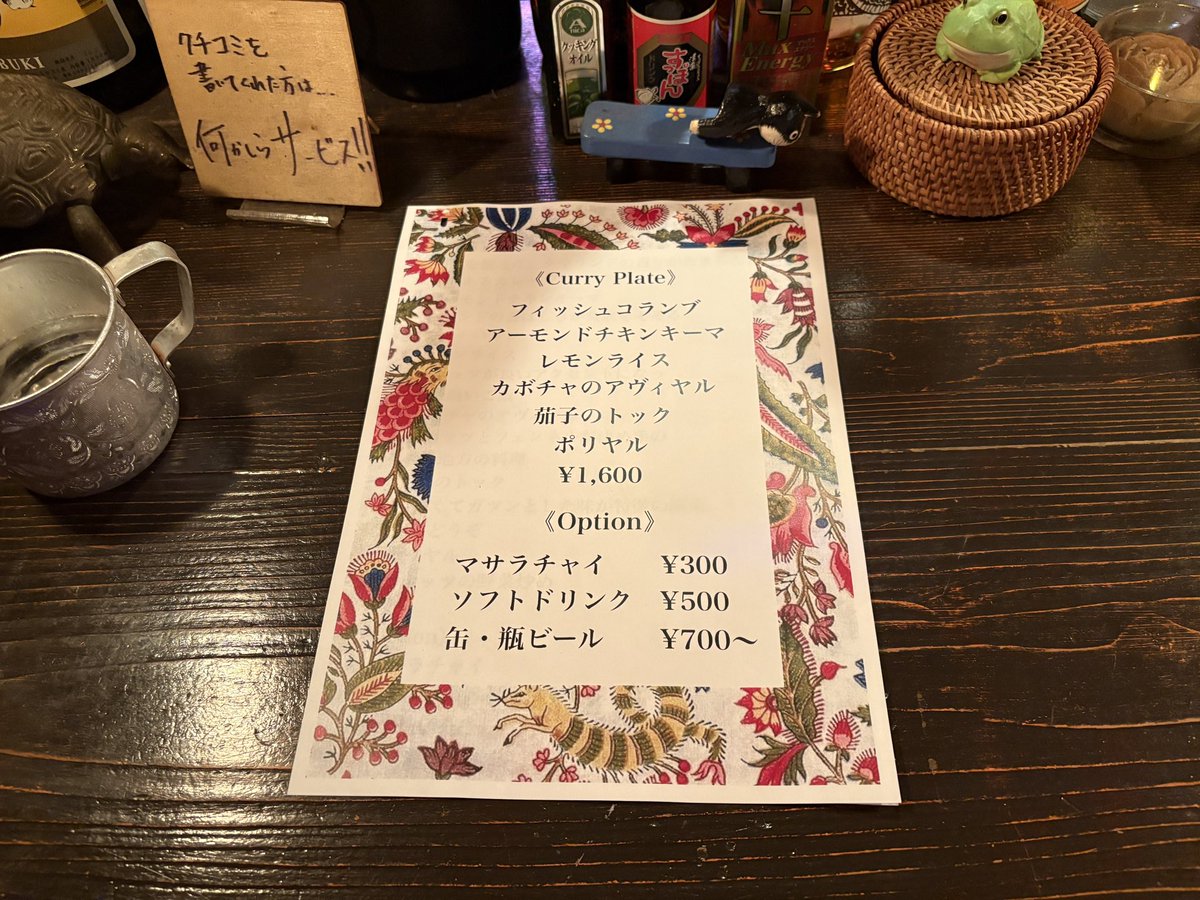 BUKI
クチコミを
書いてくれた方は…
何かしらサービス!!
クッキング
オイル
すっぽん
Max
Energy
《Curry Plate》
フィッシュコランブ
アーモンドチキンキーマ
レモンライス
カボチャのアヴィヤル
茄子のトック
ポリヤル
¥1,600
《Option》
マサラチャイ ¥300
ソフトドリンク ¥500
缶・瓶ビール ¥700〜